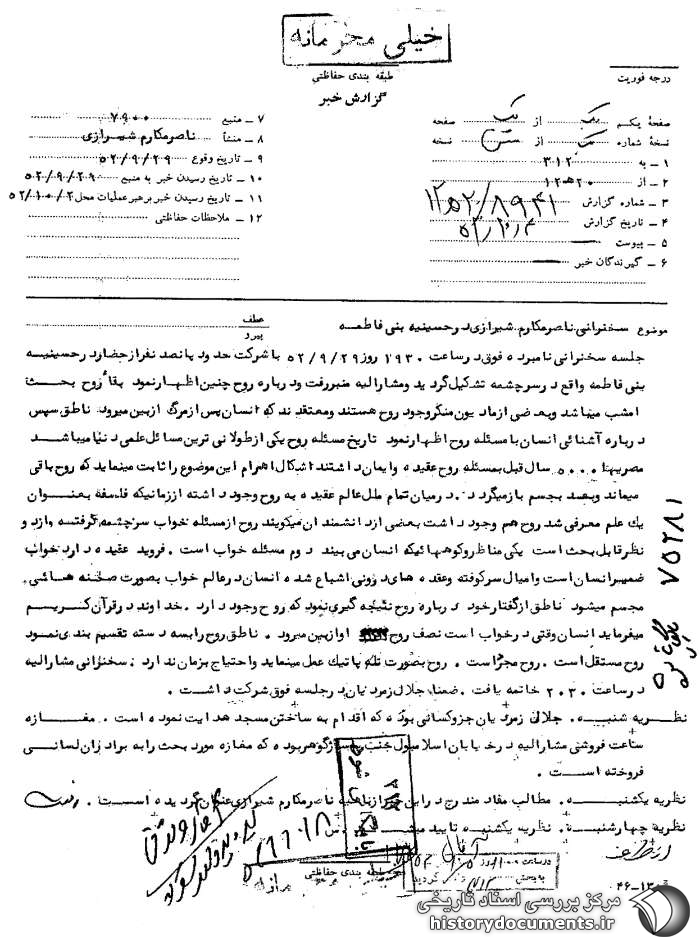 خیلی محرمانه
طبقه بندی حفاظتی
درجه فوریت
گزارش خبر
صفحهٔ یکم یک از یک صفحه
نسخهٔ شماره از نسخه
۱ – به ۳۱۲
۲ – از ۱۲ﻫ۲۰
۳ – شماره گزارش ۱۲ﻫ۲/۸۹۴۱
۴ – تاریخ گزارش
۵ – پیوست
۶ – گیرندگان خبر
۷ – منبع ۷۹۰۰
۸ – منشأ ناصرمکارم شیرازی
۹ – تاریخ وقوع ۵۲/۹/۲۹
۱۰ – تاریخ رسیدن خبر به منبع ۵۲/۹/۲۹
۱۱ – تاریخ رسیدن خبر برهبر عملیات محل ۵۲/۱۰/۲
۱۲ – ملاحظات حفاظتی
موضوع سخنرانی ناصرمکارم شیرازی در حسینیه بنی فاطمه عطف پیرو
جلسه سخنرانی نامبرده فوق در ساعت ۱۹۳۰ روز ۵۲/۹/۲۹ با شرکت حدود پانصد نفر از حضار در حسینیه
بنی فاطمه واقع در سرچشمه تشکیل گردید و مشارالیه منبر رفت و درباره روح چنین اظهار نمود بقاء روح بحث
امشب میباشد و بعضی از مادیون منکر وجود روح هستند و معتقدند که انسان پس از مرگ از بین میرود ناطق سپس
درباره آشنائی انسان با مسئله روح اظهار نمود تاریخ مسئله روح یکی از طولانی ترین مسائل علمی دنیا میباشد
مصریها ۵۰۰۰ سال قبل بمسئله روح عقیده و ایمان داشتند اشکال اهرام این موضوع را ثابت مینماید که روح باقی
میماند و بعد بجسم باز میگردد. در میان تمام ملل عالم عقیده به روح وجود داشته از زمانیکه فلسفه بعنوان
یک علم معرفی شد روح هم وجود داشت بعضی از دانشمندان میگویند روح از مسئله خواب سرچشمه گرفته و از دو
نظر قابل بحث است یکی مناظر و کوههائیکه انسان می بیند دوم مسئله خواب است. فروید عقیده دارد خواب
ضمیر انسان است و امیال سرکوفته و عقده های درونی اشباع شده انسان در عالم خواب بصورت صحنه هائی
مجسم میشود ناطق از گفتار خود درباره روح نتیجه گیری نمود که روح وجود دارد. خداوند در قرآن کریم
میفرماید انسان وقتی در خواب است نصف روح او از بین میرود. ناطق روح را بسه دسته تقسیم بندی نمود
روح مستقل است. روح مجزا است. روح بصورت تله پاتیک عمل مینماید و احتیاج بزمان ندارد. سخنرانی مشارالیه
در ساعت ۲۰۳۰ خاتمه یافت. ضمناً جلال زمردیان در جلسه فوق شرکت داشت.
نظریه شنبه. جلال زمردیان جزو کسانی بوده که اقدام به ساختن مسجد هدایت نموده است. مغازه
ساعت فروشی مشارالیه در خیابان اسلامبول جنب پاساژ گوهر بود که مغازه مورد بحث را به برادران لسانی
فروخته است.
نظریه یکشنبه. مطالب مفاد مندرج در این خبر از ناحیه ناصرمکارم شیرازی عنوان گردیده است.
نظریه چهارشنبه. نظریه یکشنبه تایید میشود.
۷۵۲۸۱
۵۱۶۶۰۱۸
در ساعت روز
به بخش گردید
طبقه بندی حفاظتی
مرکز بررسی اسناد تاریخی
historydocuments.ir